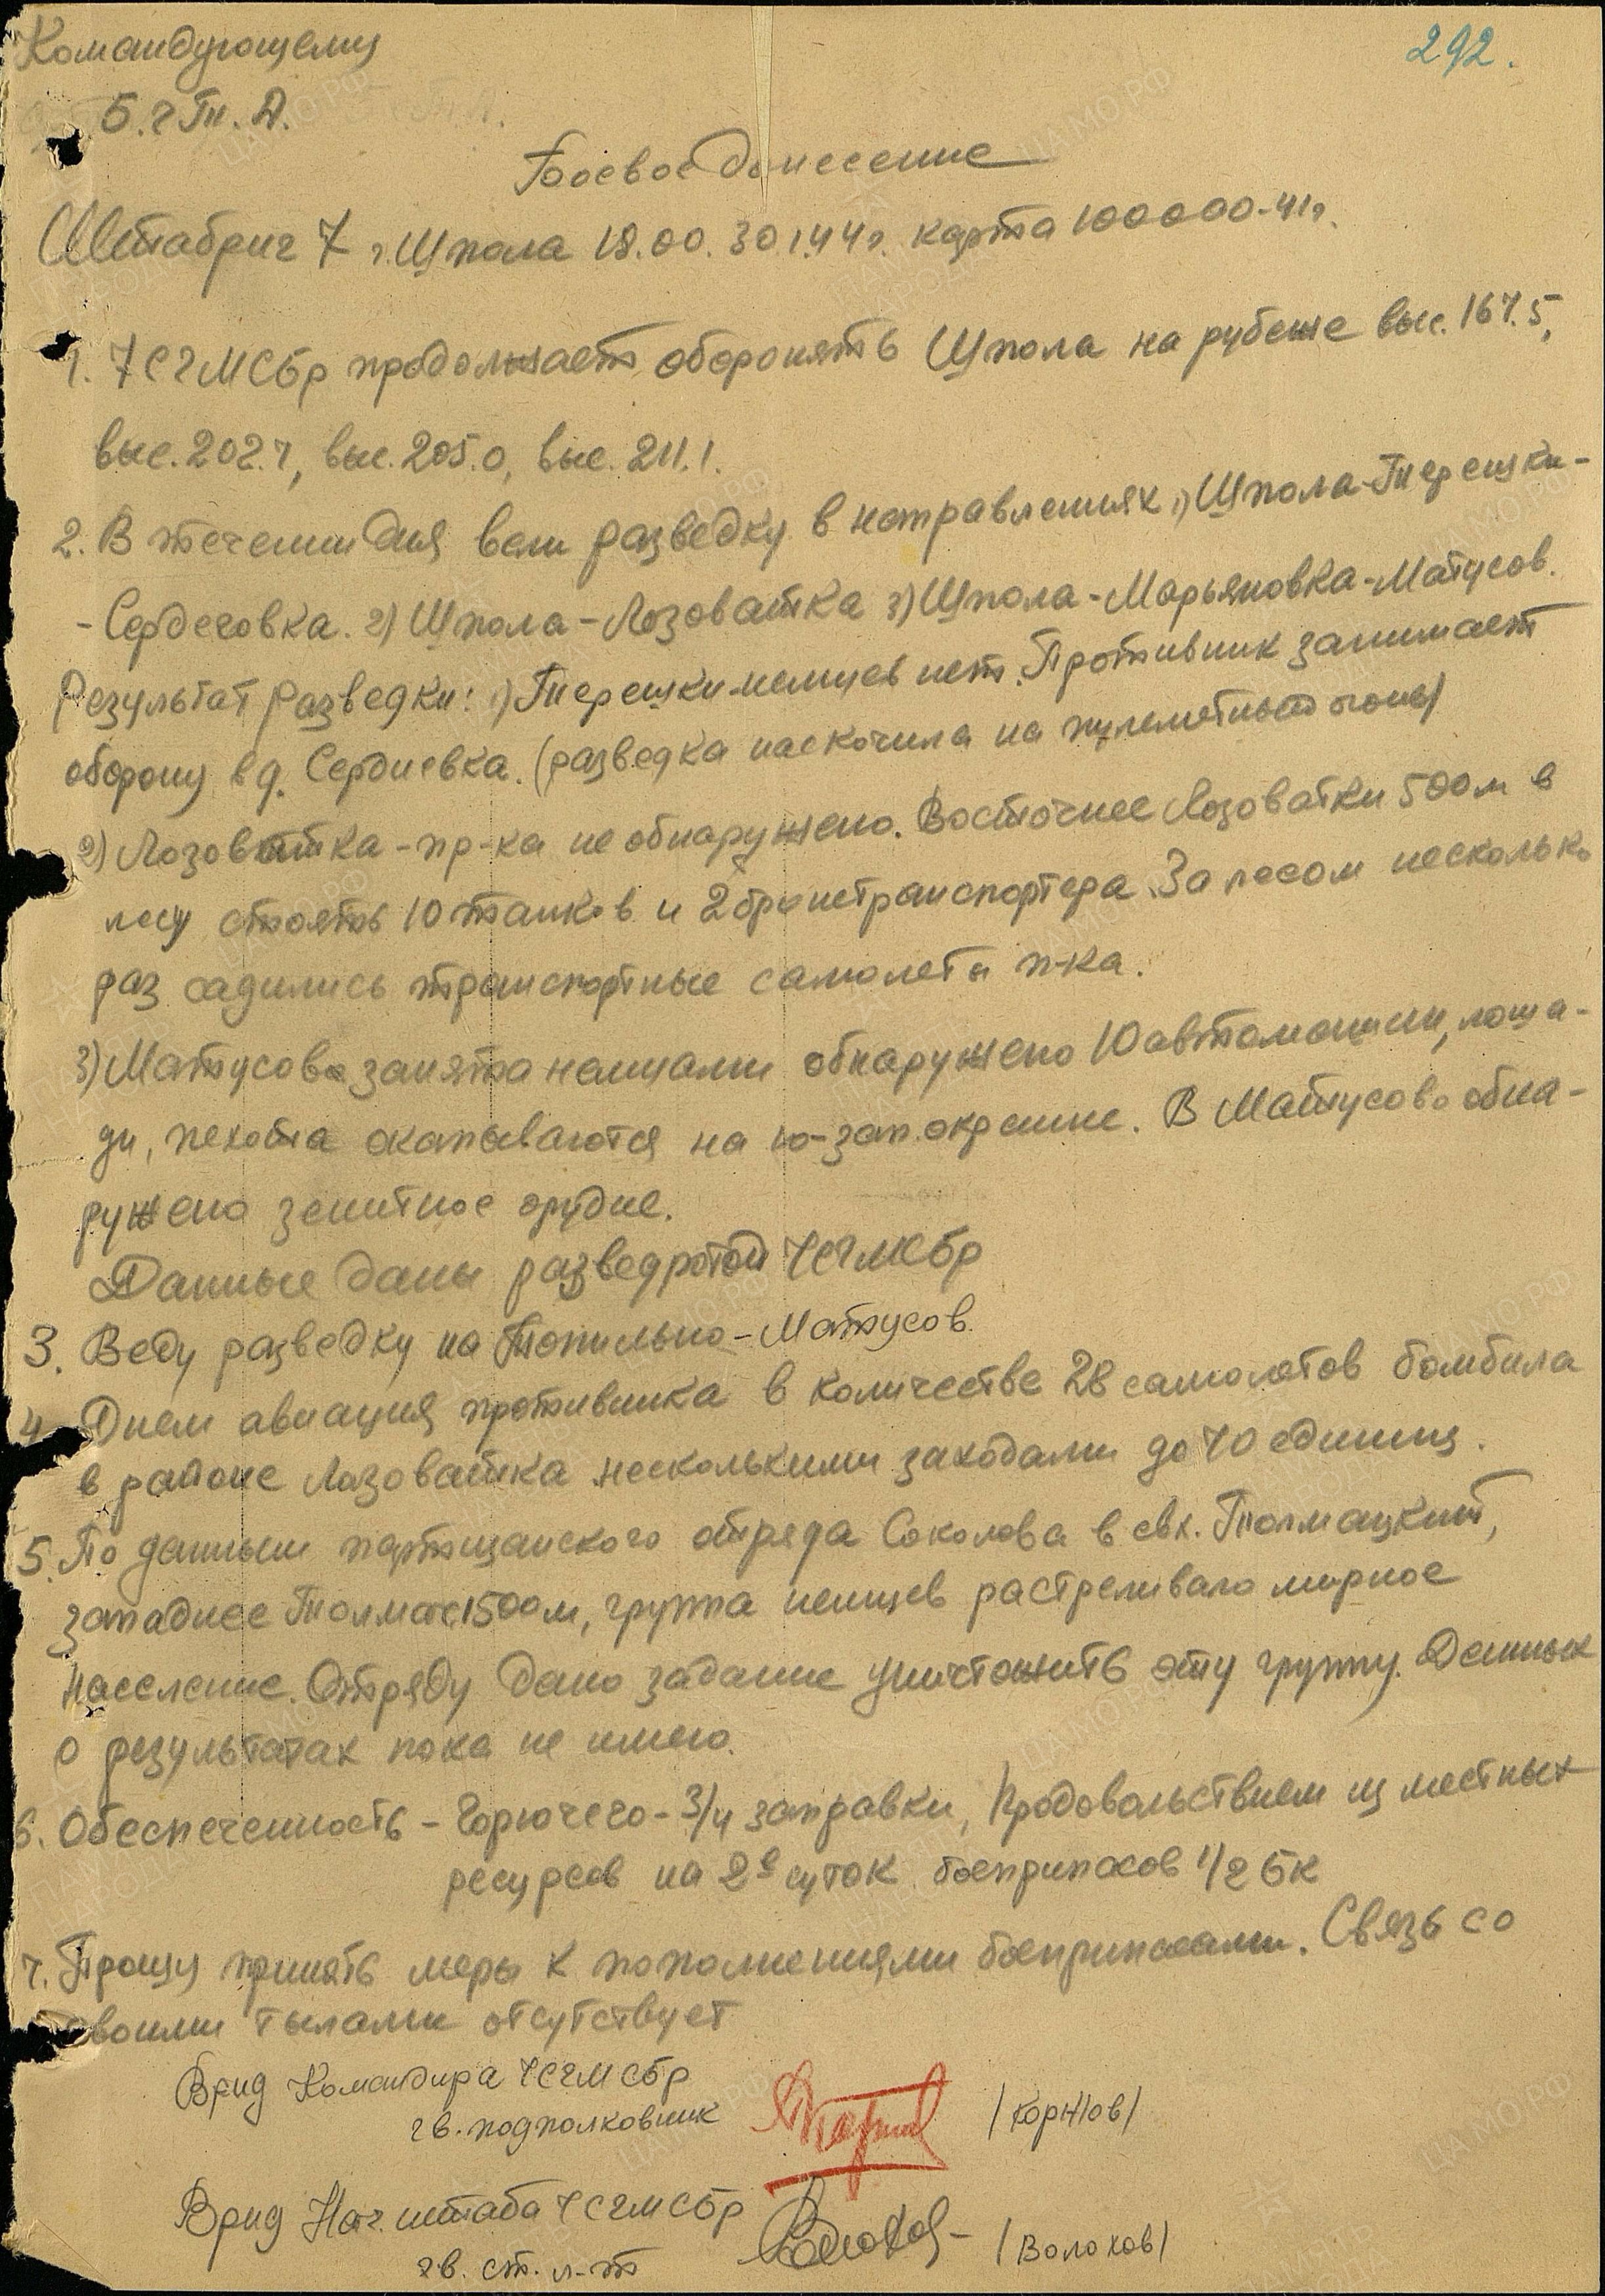 Командующему
292.
5.гТ.А.
Боевое донесение
Штабриг 7 г.Шпола 18.00. 30.1.44г. карта 100000-41г.
1. 7СГМСбр продолжает оборонять Шпола на рубеже выс. 167.5,
выс. 202.1, выс. 205.0, выс. 211.1.
2. В течении дня вели разведку в направлениях 1) Шпола-Терешки-
-Сердеговка. 2) Шпола-Лозоватка 3) Шпола-Марьяновка-Матусов.
Результат разведки: 1) Терешки-немцев нет. Противник занимает
оборону в д. Сердиевка. (разведка наскочила на пулеметный огонь)
2) Лозоватка-пр-ка не обнаружено. Восточнее Лозоватки 500м в
лесу стоять 10 танков и 2 бронетранспортера. За лесом несколько
раз садились транспортные самолеты п-ка.
3) Матусово занята немцами обнаружено 10 автомашин, лоша-
ди, пехота окапываются на ю-зап.окраине. В Матусово обна-
ружено зенитное орудие.
Данные даны разведротой 7СГМСбр
3. Веду разведку на Топильно-Матусов.
4. Днем авиация противника в количестве 28 самолетов бомбила
в районе Лозоватка несколькими заходами до 70 единиц.
5. По данным партизанского отряда Соколова в свх. Толмацкий,
западнее Толмач 1500м, группа немцев растреливало мирное
население. Отряду дано задание уничтожить эту группу. Данных
о результатах пока не имею.
6. Обеспеченность - Горючего - 3/4 заправки, Продовольствием из местных
ресурсов на 2е суток боеприпасов 1/2 бк
7. Прошу принять меры к пополнениями боеприпасами. Связь со
своими тылами отсутствует
Врид Командира 7СГМСбр
гв. подполковник /Коржов/
Врид Нач. штаба 7СГМСбр
гв. ст. л-т /Волохов/
ЦАМО.РФ